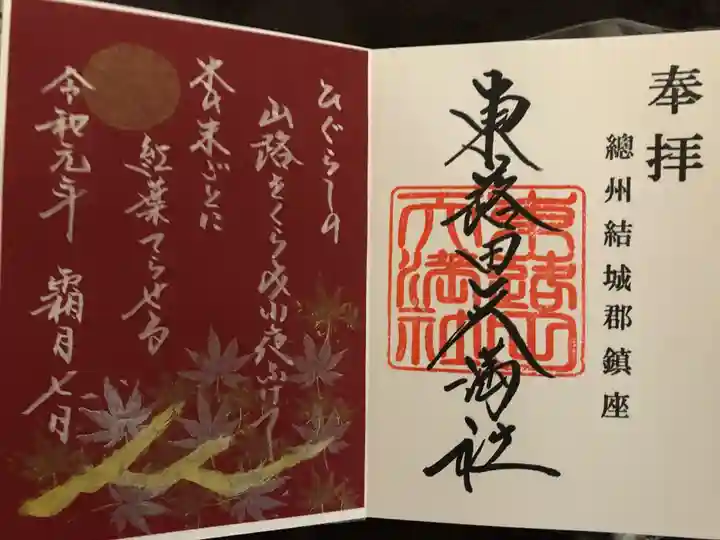 奉拝
總州結城郡鎮座
東蕗田天満社
ひぐらしの
山路をくらみ小夜ふけて
木の末ごとに
紅葉てらせる
令和元年 霜月七日